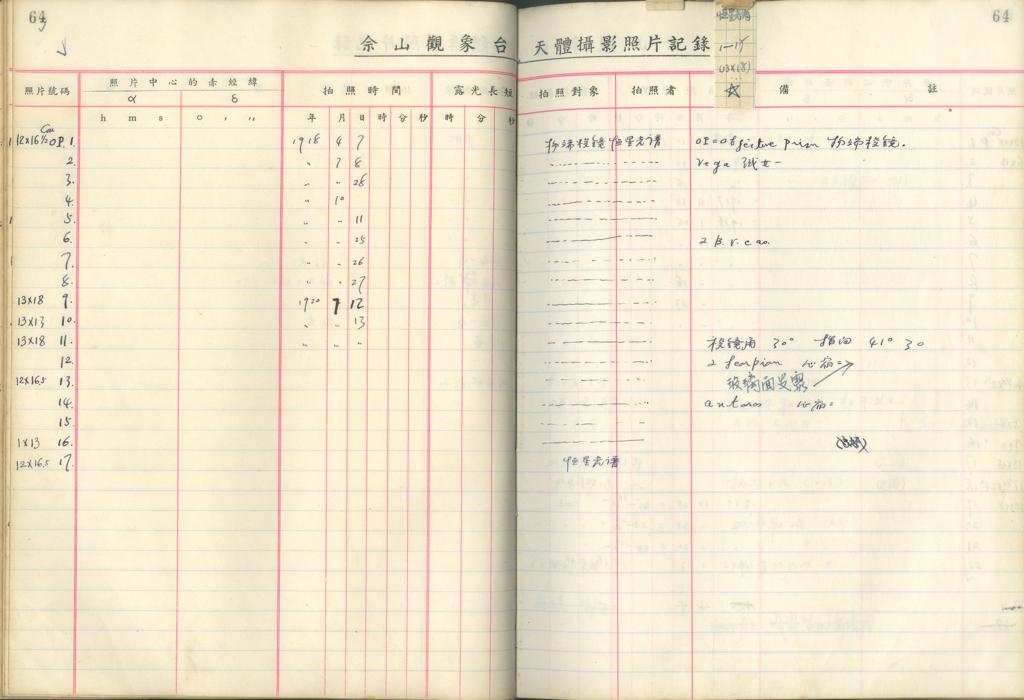 64
64
佘山觀象台 天體攝影照片記錄
1-17
(13×18)
☆
照片號碼 照片中心的赤經緯 拍照時間 露光長短 拍照對象 拍照者 備 註
α δ
h m s ° ′ ″ 年 月 日 時 分 秒 時 分 秒
12×16½ O.P. 1. 1918 4 7 物端棱鏡 恒星光谱 OP=Objective Prism 物端棱鏡.
2. " 7 8 Vega 織女一
3. " " 28
4. " 10
5. " " 11
6. " " 25
7. " " 26
8. " " 27
13×18 9. 1920 7 12
13×13 10. " " 13
13×18 11. " " " 棱鏡角 30° 指向 41° 30
12. α Scorpion 心宿二
12×16.5 13. 玻璃面受
14. Antares 心宿二
15.
1×13 16.
12×16.5 17. 恒星光谱